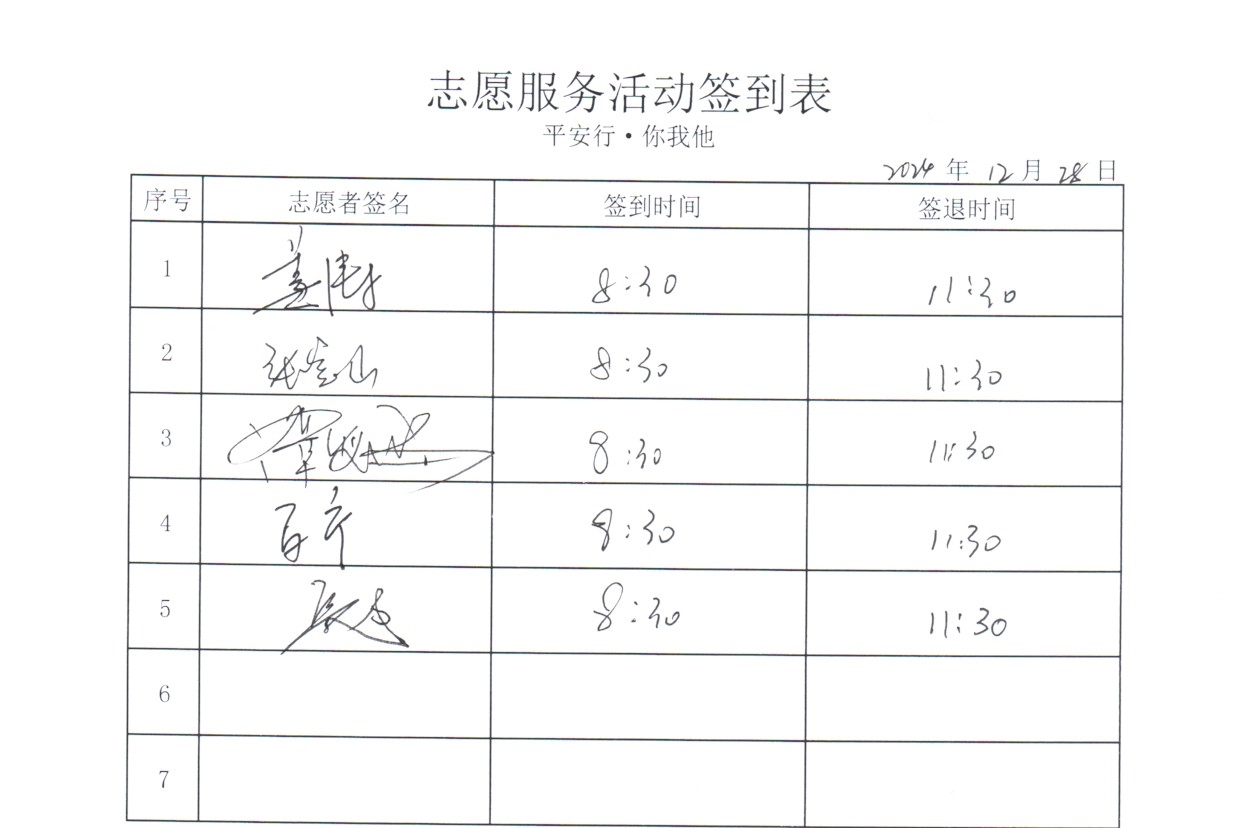 志愿服务活动签到表
平安行·你我他
2024年12月28日
序号 志愿者签名 签到时间 签退时间
1 8:30 11:30
2 8:30 11:30
3 8:30 11:30
4 8:30 11:30
5 8:30 11:30
6
7